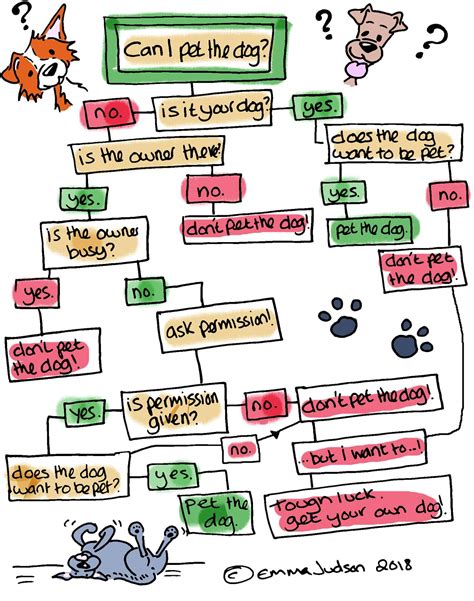 ?
?
?
?
Can I pet the dog?
no.
is it your dog?
yes.
is the owner there?
does the dog
want to be pet?
yes.
no.
yes.
no.
don't pet the dog!
pet the dog.
is the owner
busy?
don't pet
the dog!
yes.
no.
ask permission!
don't pet
the dog!
yes.
is permission
given?
no.
don't pet the dog!
no.
...but i want to...!
does the dog
want to be pet?
yes.
pet the
dog.
tough luck.
get your own dog!
© Emma Judson 2018